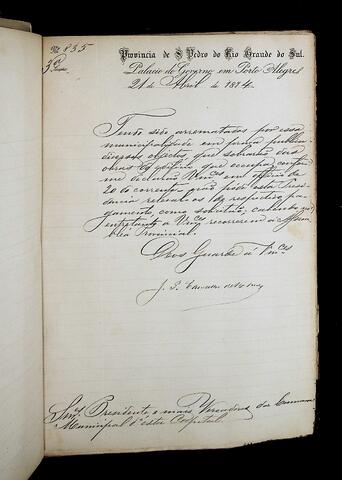 Nº 835
3ª
Provincia de S. Pedro do Rio Grande do Sul.
Palacio do Governo em Porto Alegre
21 de Abril de 1874.
Tendo sido arrematados por essa
municipalidade em fórma publica
diversos objectos que sobrarão das
obras do edificio que occupa, confor
me declarou Vmcês em officio de
20 do corrente, não pode esta Presi
dencia releval-os do respectivo pa
gamento, como solicitão, cabendo
entretanto a Vmcês recorrerem á Assem
bléa Provincial.
Deos Guarde á Vmcês
J. P. Carvalho de Moraes
Snrs. Presidente e mais Vereadores da Camara
Municipal d'esta Capital.